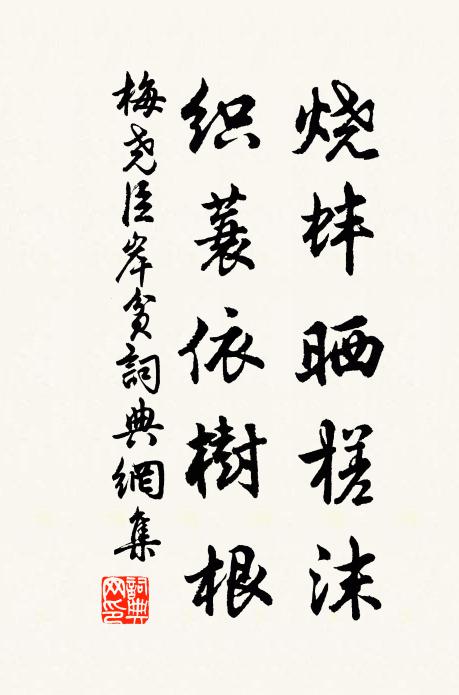 烧蚌晒槎沫
织蓑依樹根
梅尧臣岸贫詞典網集
詞典网印